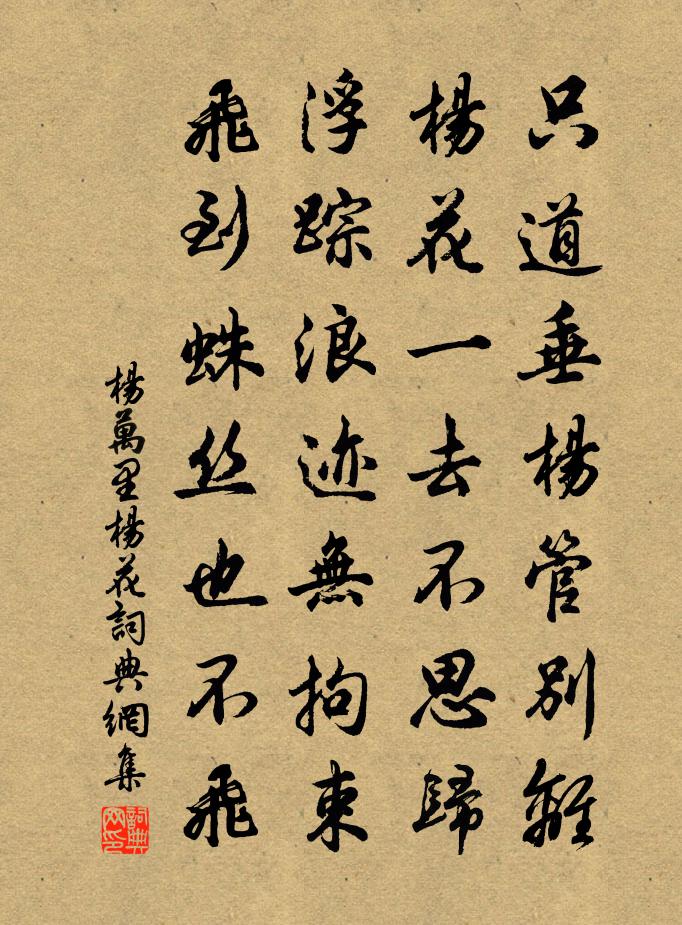 只道垂楊管別離
楊花一去不思歸
浮踪浪迹無拘束
飛到蛛丝也不飛
楊萬里楊花詞典網集
詞典網印